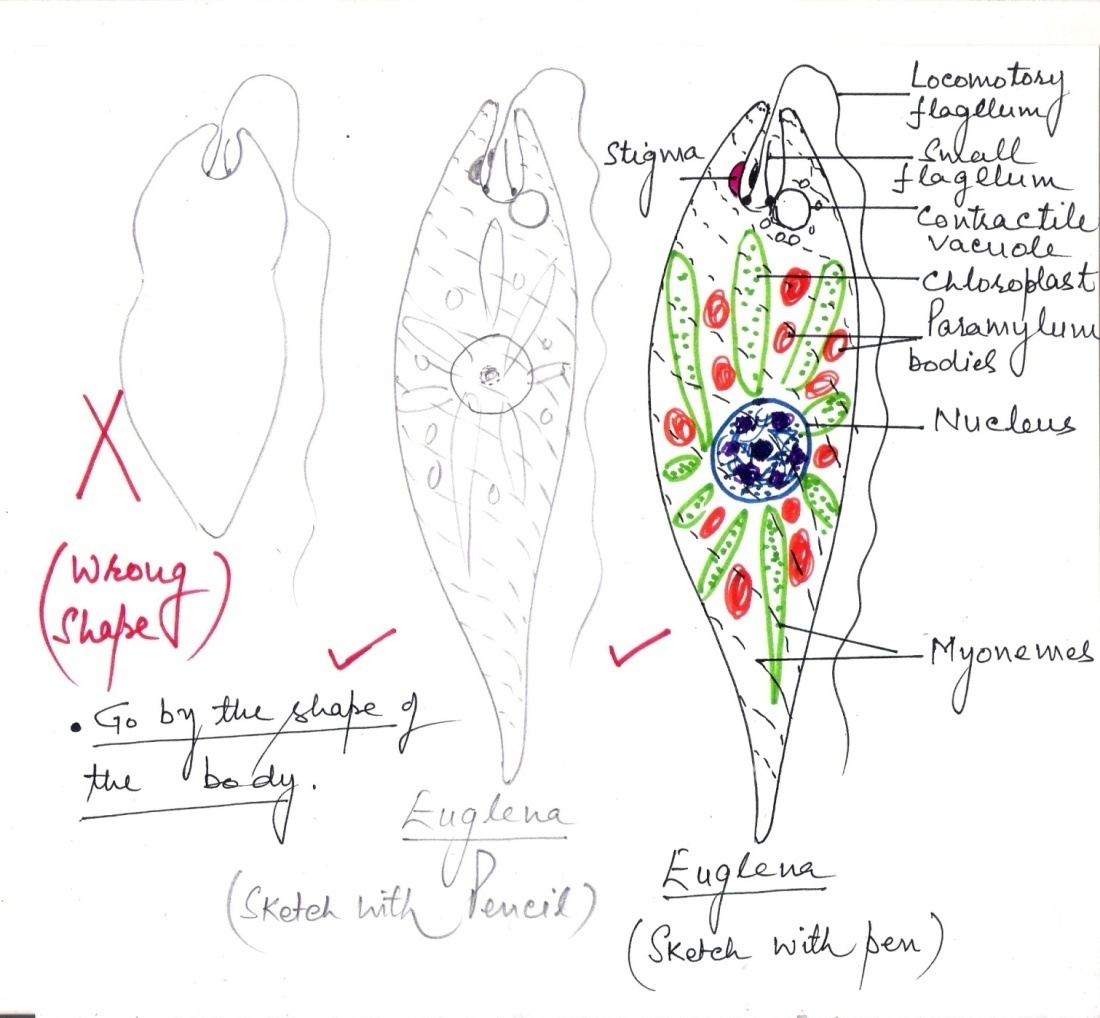 Locomotory
flagellum
Stigma
Small
flagellum
Contractile
vacuole
Chloroplast
Paramylum
bodies
Nucleus
(Wrong
Shape)
Myonemes
• Go by the shape of
the body.
Euglena
(Sketch with Pencil)
Euglena
(Sketch with pen)